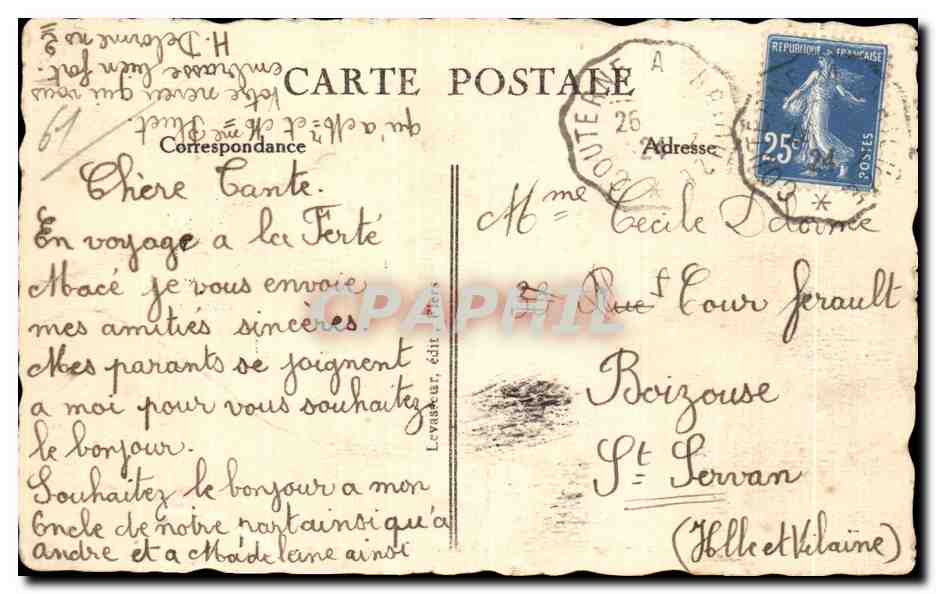 CARTE POSTALE
Correspondance
Adresse
61
Chère Tante.
En voyage a la Ferté
Macé je vous envoie
mes amitiés sincères.
Mes parants se joignent
a moi pour vous souhaitez
le bonjour.
Souhaitez le bonjour a mon
Oncle de notre part ainsi qu'a
andre et a Madelaine ainsi
qu'a Mr et Mme
Votre neveu qui vous
embrasse bien fort.
H. Delorme
Levasseur, édit., Flers
Mme Cecile Delorme
20 Rue Tour Jerault
Boizouse
St Servan
(Ille et Vilaine)
REPUBLIQUE FRANÇAISE
25c
POSTES
COUTERNE A
26
24
24
CPAPHIL